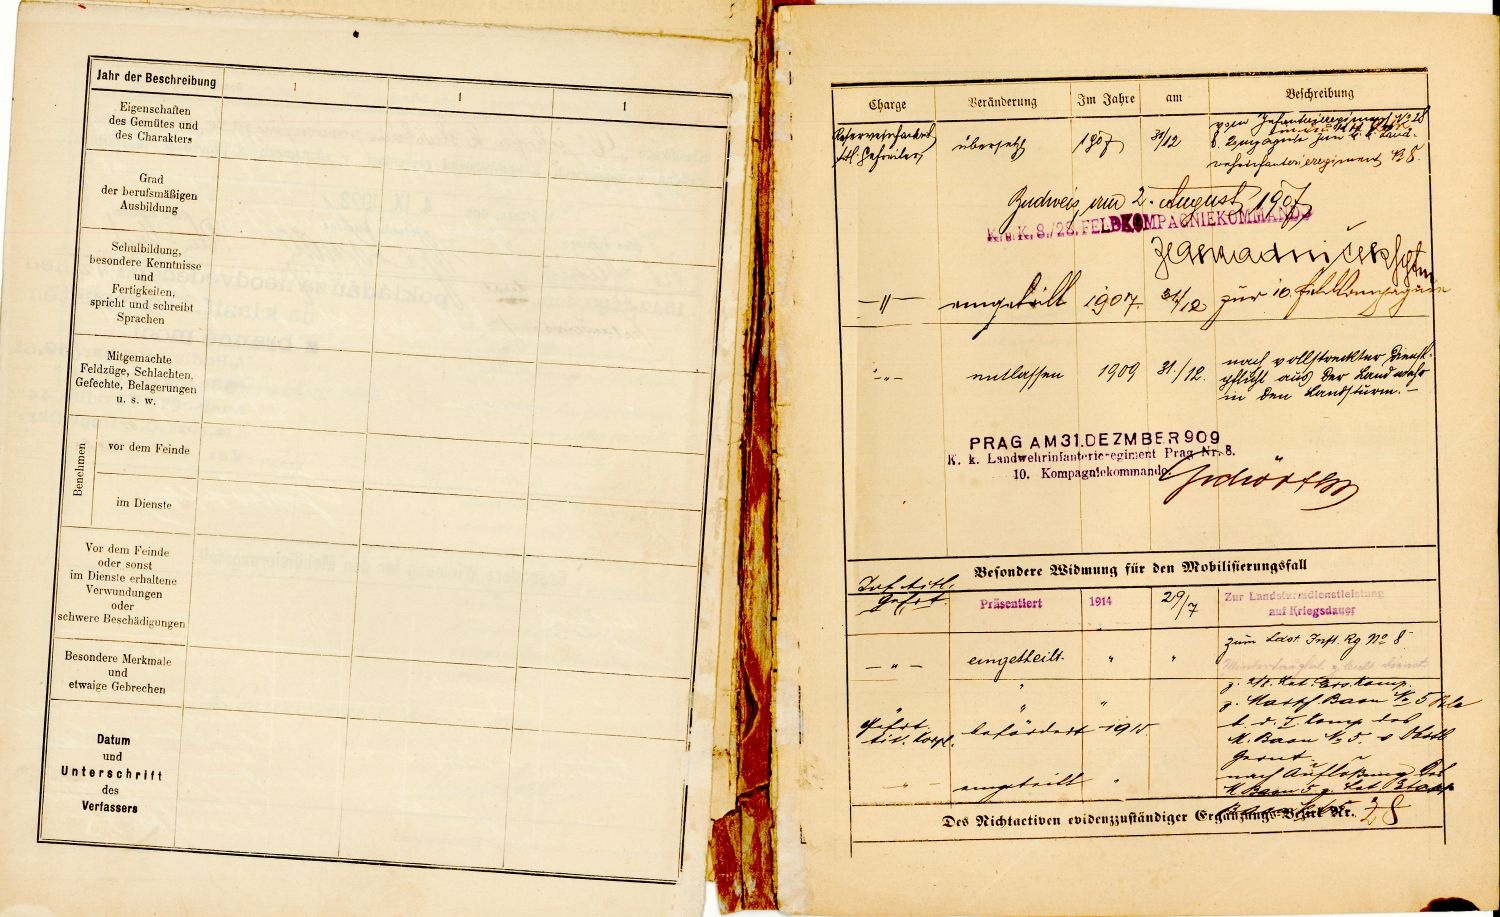 Jahr der Beschreibung
1
1
1
Eigenschaften
des Gemütes und
des Charakters
Grad
der berufsmäßigen
Ausbildung
Schulbildung,
besondere Kenntnisse
und
Fertigkeiten,
spricht und schreibt
Sprachen
Mitgemachte
Feldzüge, Schlachten,
Gefechte, Belagerungen
u. s. w.
Benehmen
vor dem Feinde
im Dienste
Vor dem Feinde
oder sonst
im Dienste erhaltene
Verwundungen
oder
schwere Beschädigungen
Besondere Merkmale
und
etwaige Gebrechen
Datum
und
Unterschrift
des
Verfassers
Charge
Veränderung
Im Jahre
am
Beschreibung
übersetzt
1907
31/12
vom Infanterieregiment No 28
wehrinfanterieregiment No 8.
Budweis am 2. August 1907
K. u. K. 8./28. FELDKOMPAGNIEKOMMANDO
—"—
eingeteilt
1907.
31/12
zur 10. Feldkompagnie
—"—
entlassen
1909
31./12.
nach vollstreckter Dienst-
pflicht aus der Landwehr
in den Landsturm.—
PRAG AM 31. DEZMBER 909
K. k. Landwehrinfanterieregiment Prag Nr. 8.
10. Kompagniekommando.
Besondere Widmung für den Mobilisierungsfall
Inf. titl.
Gefrt.
Präsentiert
1914
29/7
Zur Landsturmdienstleistung
auf Kriegsdauer
—"—
eingetheilt.
"
"
zum Ldst. Inft. Rg No 8
Gefrt.
tit. Korpl.
befördert
1915
M. Baon No 5.
"
eingeteilt
"
nach Auflößung des
Des Nichtactiven evidenzzuständiger Ergänzungs-Bezirk Nr. 28